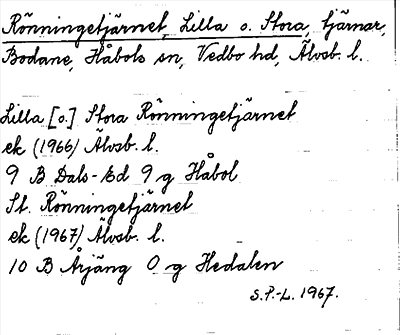 Rönningetjärnet, Lilla o. Stora, tjärnar,
Bodane, Håbols sn, Vedbo hd, Älvsb. l.
Lilla [o.] Stora Rönningetjärnet
ek (1966) Älvsb. l.
9 B Dals-Ed 9 g Håbol
St. Rönningetjärnet
ek (1967) Älvsb. l.
10 B Årjäng 0 g Hedalen
S.P.-L. 1967.